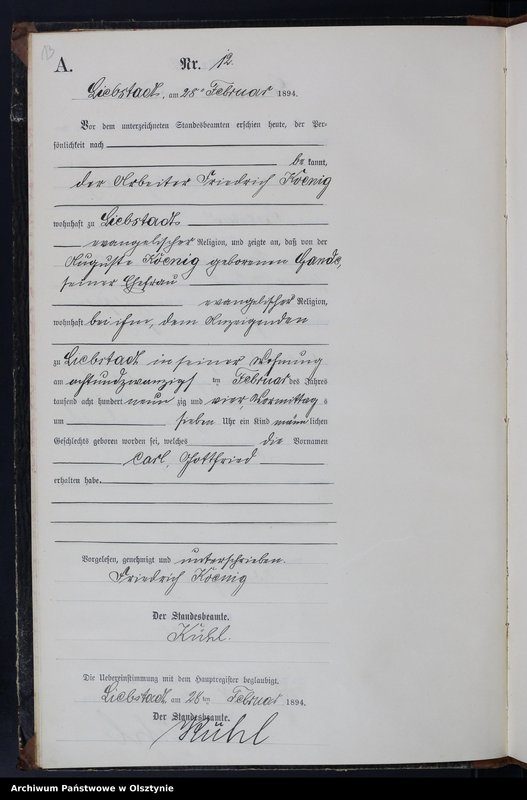 13
A.
Nr. 12.
Liebstadt, am 28ten Februar 1894.
Vor dem unterzeichneten Standesbeamten erschien heute, der Per-
sönlichkeit nach
bekannt,
der Arbeiter Friedrich Koenig
wohnhaft zu Liebstadt
evangelischer Religion, und zeigte an, daß von der
Auguste Koenig geborenen Gande,
seiner Ehefrau
evangelischer Religion,
wohnhaft bei ihm, dem Anzeigenden
zu Liebstadt in seiner Wohnung
am achtundzwanzigsten Februar des Jahres
tausend acht hundert neunzig und vier, Vormittags
um sieben Uhr ein Kind männlichen
Geschlechts geboren worden sei, welches die Vornamen
Carl, Gottfried
erhalten habe.
Vorgelesen, genehmigt und unterschrieben.
Friedrich Koenig
Der Standesbeamte.
Kühl.
Die Uebereinstimmung mit dem Hauptregister beglaubigt.
Liebstadt, am 28ten Februar 1894.
Der Standesbeamte.
Kühl
Archiwum Państwowe w Olsztynie